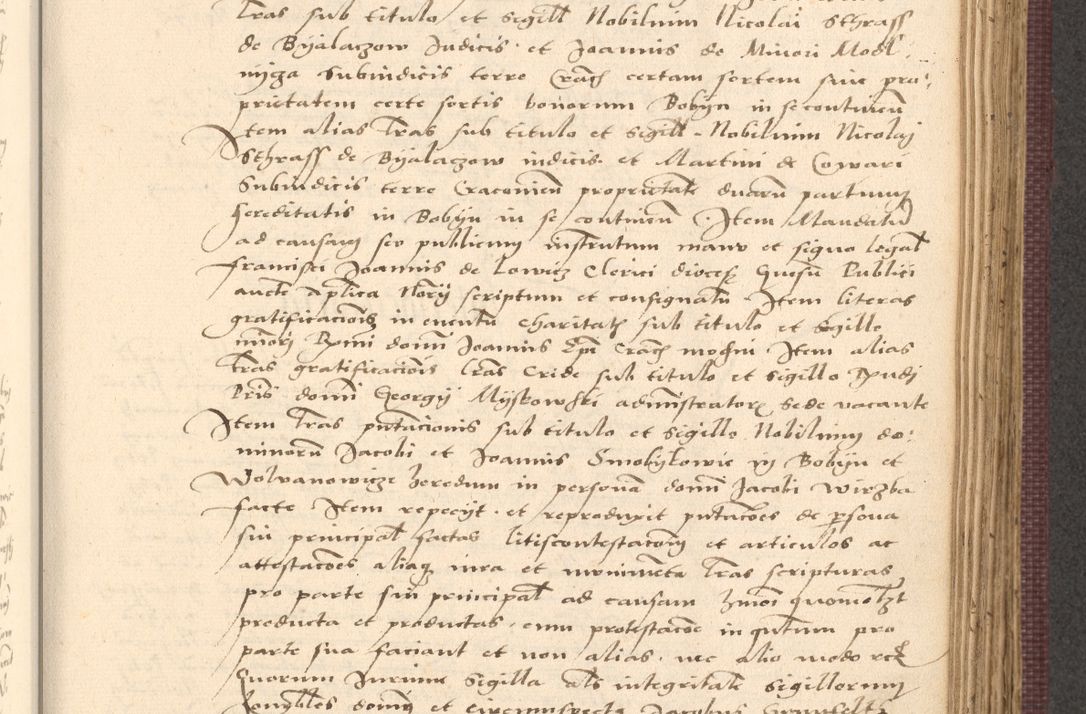 Lras sub titulo et sigill Nobilium Nicolai Sthrass
de Byalaczow Iudicis et Joannis de Minori Modl
nycza Subiudicis terre Crach certam sortem siue pro
prietatem certe sortis bonorum Bobyn in se continen
Item alias Lras sub titulo et sigill Nobilium Nicolaj
Sthrass de Byalaczow iudicis et Martini de Cowari
Subiudicis terre Cracouien proprietate duarum partium
hereditatis in Bobyn in se continen Item Mandatum
ad causam seu publicum instrutum manu et signo legal
francisci Joannis de Lowicz Clerici dioces Gnesn Publici
aucte Aplica Notrij scriptum et consignatum Item literas
gratificacionis in euentum charitat sub titulo et sigillo
minorj Rymi domini Joannis Epi Crach moderni Item alias
Lras gratificacionis Lras Cride sub titulo et sigillo Rndi
Pris domini Georgij Myskowski administratoris Sede vacante
Item Lras putacionis sub titulo et sigillo Nobilium do
minorum Jacobi et Joannis Smobylowie in Bobyn et
Wolwanowicze heredum in persona domini Jacobi Wirzba
facte Item repecijt et reproduxit putacoes de persona
sui principal factas litiscontestacom et articulos ac
attestacoes aliaque iura et munimenta Lras scripturas
pro parte sui principal ad causam hmoi quomolzt
producta et productas cum protestacoe in quantum pro
parte sua faciant et non alias nec alio modo
Quorum Jurium Sigilla als integritate sigillorum
honobles dominus et circumspectus Jacobus